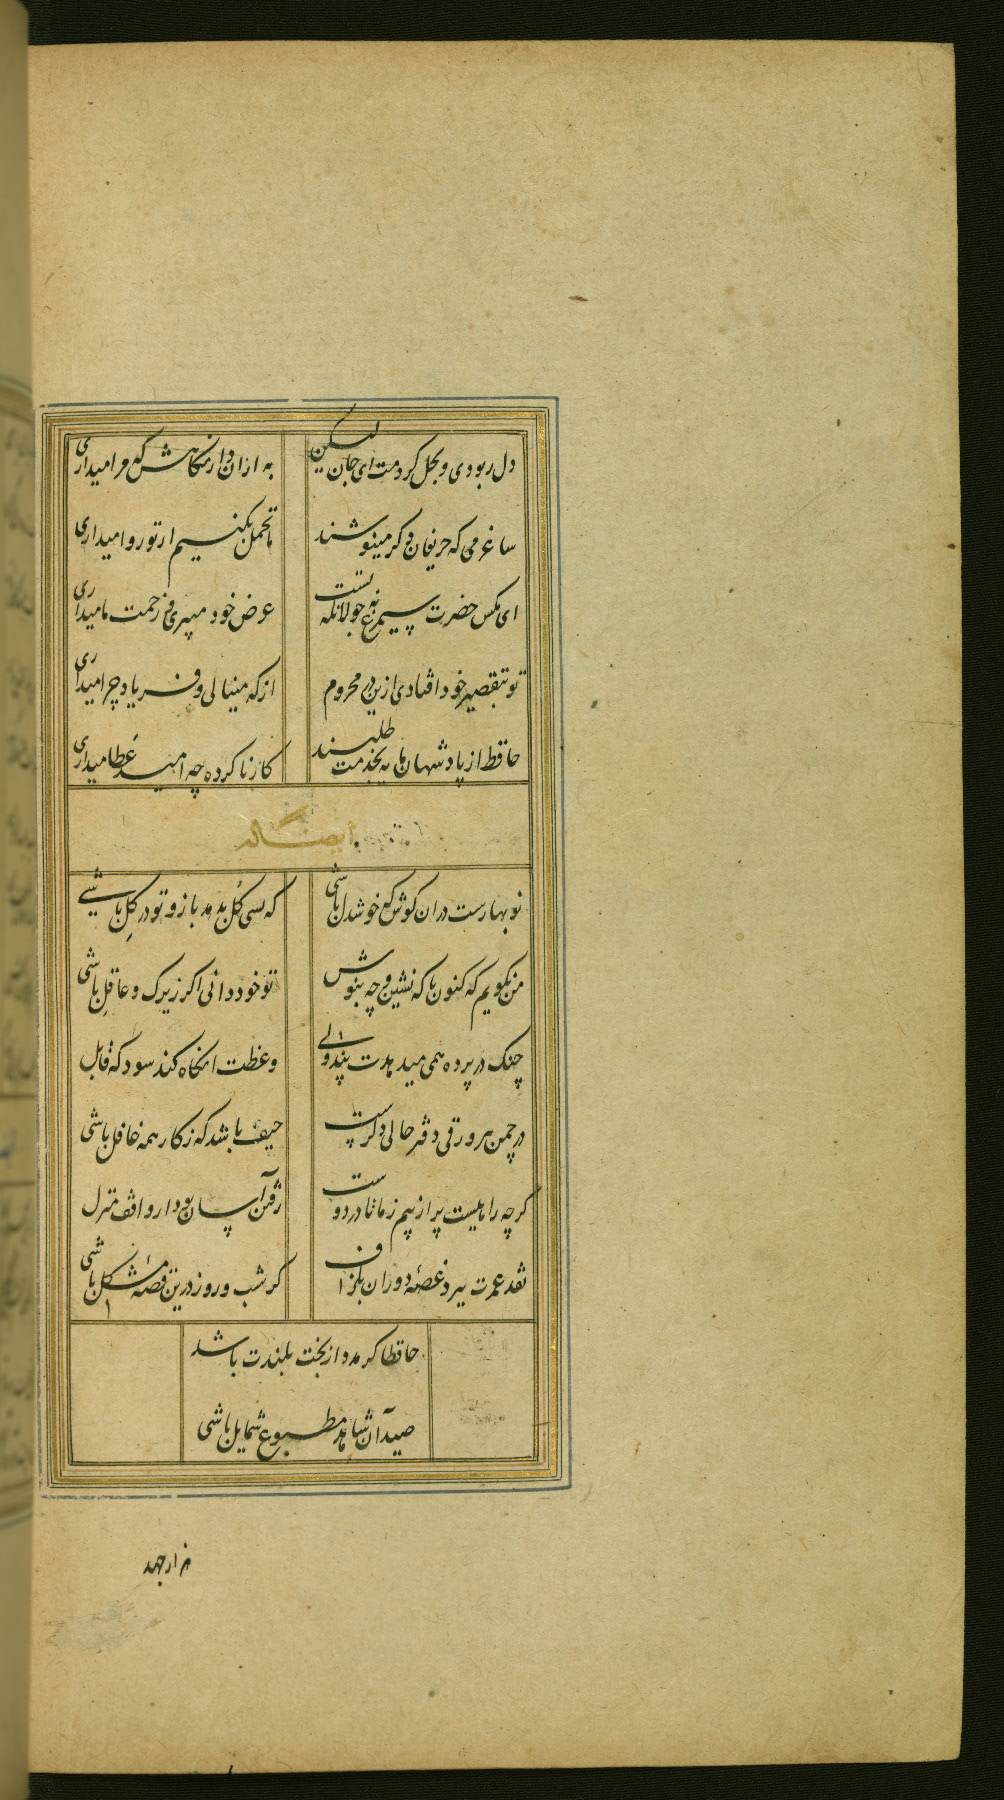 دل ربودی و بحل کردمت ای جان لیکن به ازان دار نکاهش که مرا میداری
ساغر می که حریفان دکر مینوشند ما تحمل نکنیم ار تو روا میداری
ای مکس حضرت سیمرغ نه جولانکه تست عرض خود میبری و زحمت ما میداری
تو بتقصیر خود افتادی ازین در محروم از که مینالی و فریاد چرا میداری
حافظ از پادشهان پایه بخدمت طلبند کار ناکرده چه امید عطا میداری
ایضا له
نوبهارست دران کوش که خوشدل باشی که بسی کل بدمد باز و تو در کل باشی
من نکویم که کنون با که نشین و چه بنوش تو خود دانی اکر زیرک و عاقل باشی
چنک در پرده همی میدهدت پند ولی وعظت انکاه کند سود که قابل
در چمن هر ورقی دفتر حالی دکرست حیف باشد که ز کار همه غافل باشی
کرچه راهیست پر از بیم ز ما تا در دوست رفتن آسان بود ار واقف منزل
نقد عمرت ببرد غصهٔ دوران بکزاف کر شب و روز درین قصهٔ مشکل باشی
حافظا کر مدد از بخت بلندت باشد
صید آن شاهد مطبوع شمایل باشی
هزار جهد